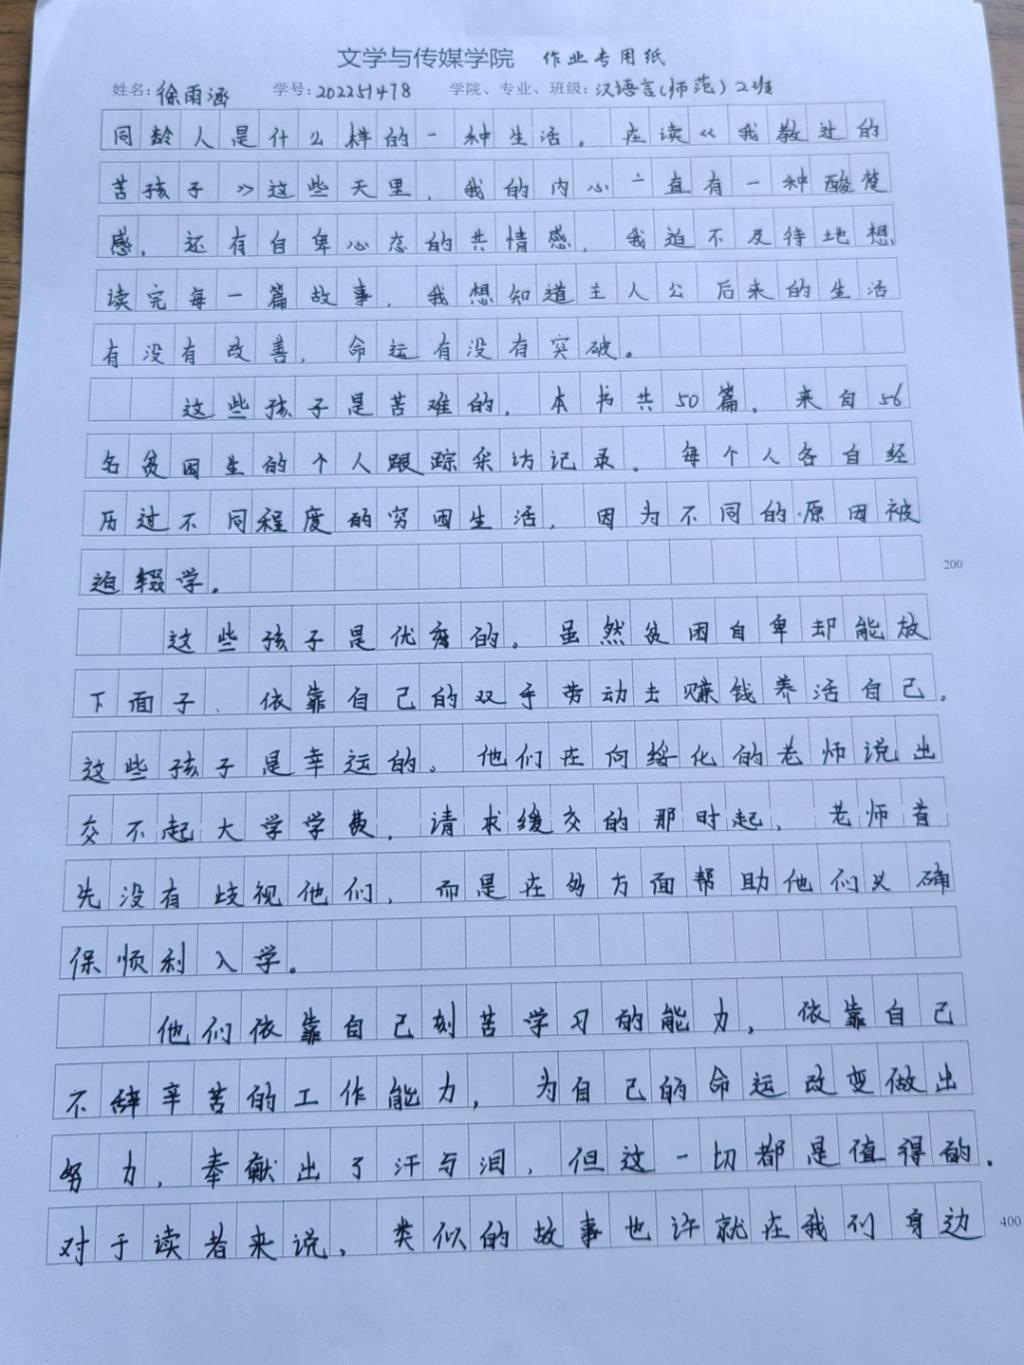 文学与传媒学院 作业专用纸
姓名：徐雨涵 学号：202251478 学院、专业、班级：汉语言（师范）2班
同龄人是什么样的一种生活。在读《我教过的
苦孩子》这些天里，我的内心一直有一种酸楚
感，还有自卑心态的共情感，我迫不及待地想
读完每一篇故事，我想知道主人公后来的生活
有没有改善，命运有没有突破。
这些孩子是苦难的，本书共50篇，来自56
名贫困生的个人跟踪采访记录，每个人各自经
历过不同程度的穷困生活，因为不同的原因被
迫辍学。
200
这些孩子是优秀的。虽然贫困自卑却能放
下面子、依靠自己的双手劳动去赚钱养活自己。
这些孩子是幸运的。他们在向绥化的老师说出
交不起大学学费，请求缓交的那时起，老师首
先没有歧视他们，而是在多方面帮助他们以确
保顺利入学。
他们依靠自己刻苦学习的能力，依靠自己
不辞辛苦的工作能力，为自己的命运改变做出
努力，奉献出了汗与泪，但这一切都是值得的。
对于读者来说，类似的故事也许就在我们身边
400